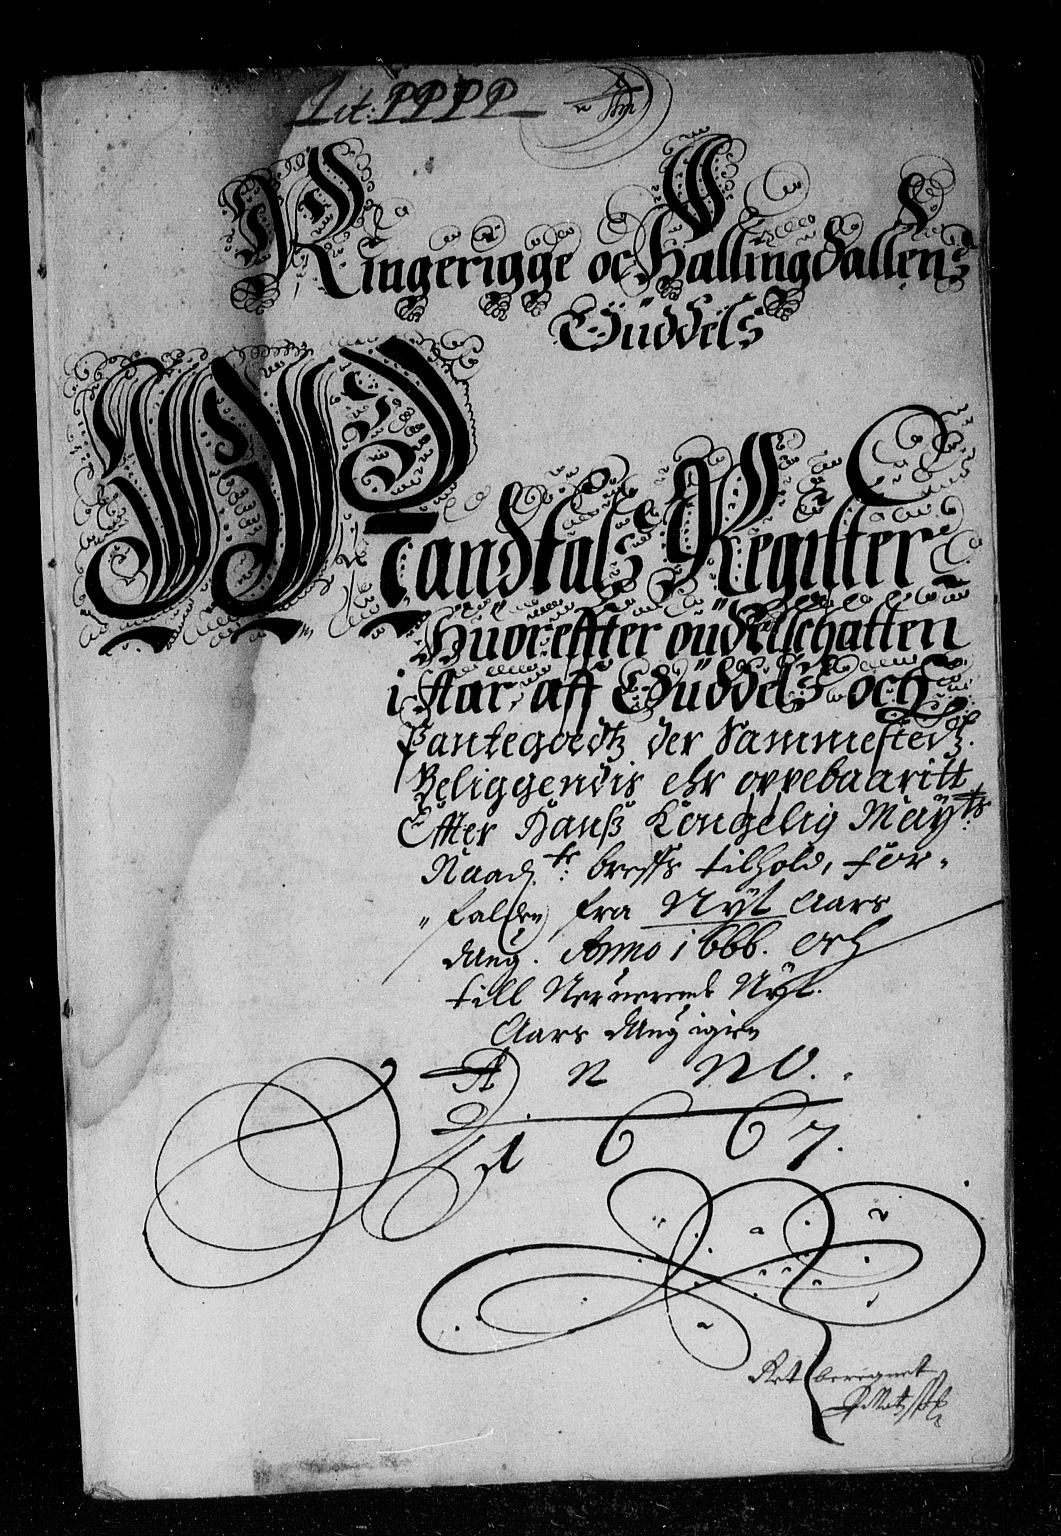 Lit: PPPP
Ringerigge oc Hallingdallens
Güddels
Mandtals Register
Hüoreffter oüdelschatten
i star, aff Güddels och
Pantegoedtz der Sammestedtz
Beliggendis ehr oppebaaritt
Effter Hanß Kongelig Mayts:
Naadtr: breffs tilhold, for-
falden fra Nyt Aars
dag. Anno 1666. och
till Neruerende Nyt
Aars dag igien
A N N O.
1 6 6 7.
Ret beregnet